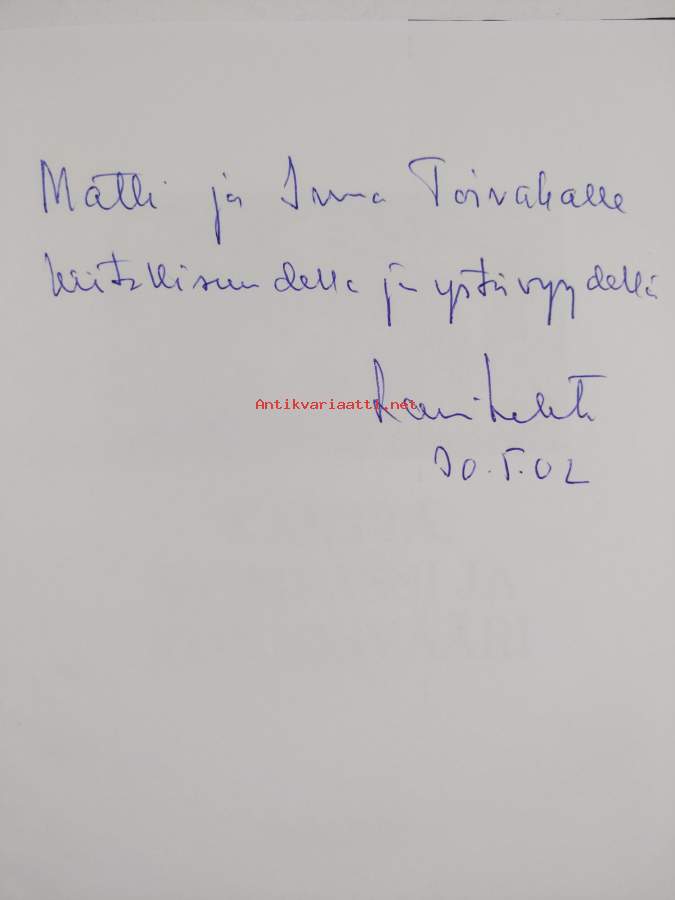 Matti ja Irma Toivakalle
kiitollisuudella ja ystävyydellä
Antikvariaatti.net
Rauni Lehti
30.5.02